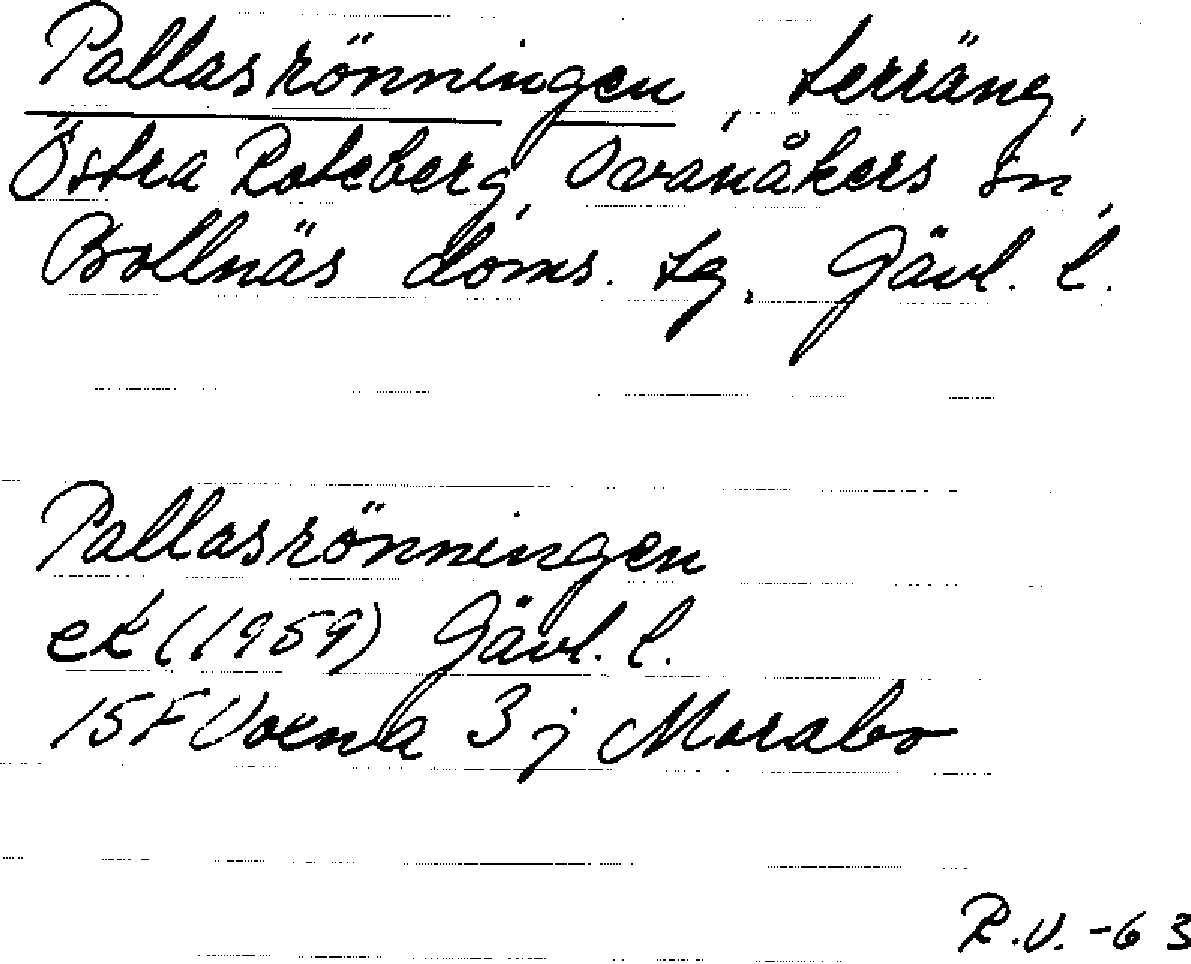 Pallasrönningen, terräng,
Östra Roteberg, Ovanåkers sn,
Bollnäs doms. tg. Gävl. l.
Pallasrönningen
ek (1959) Gävl. l.
15F Voxna 3j Morabo
R.V. -63